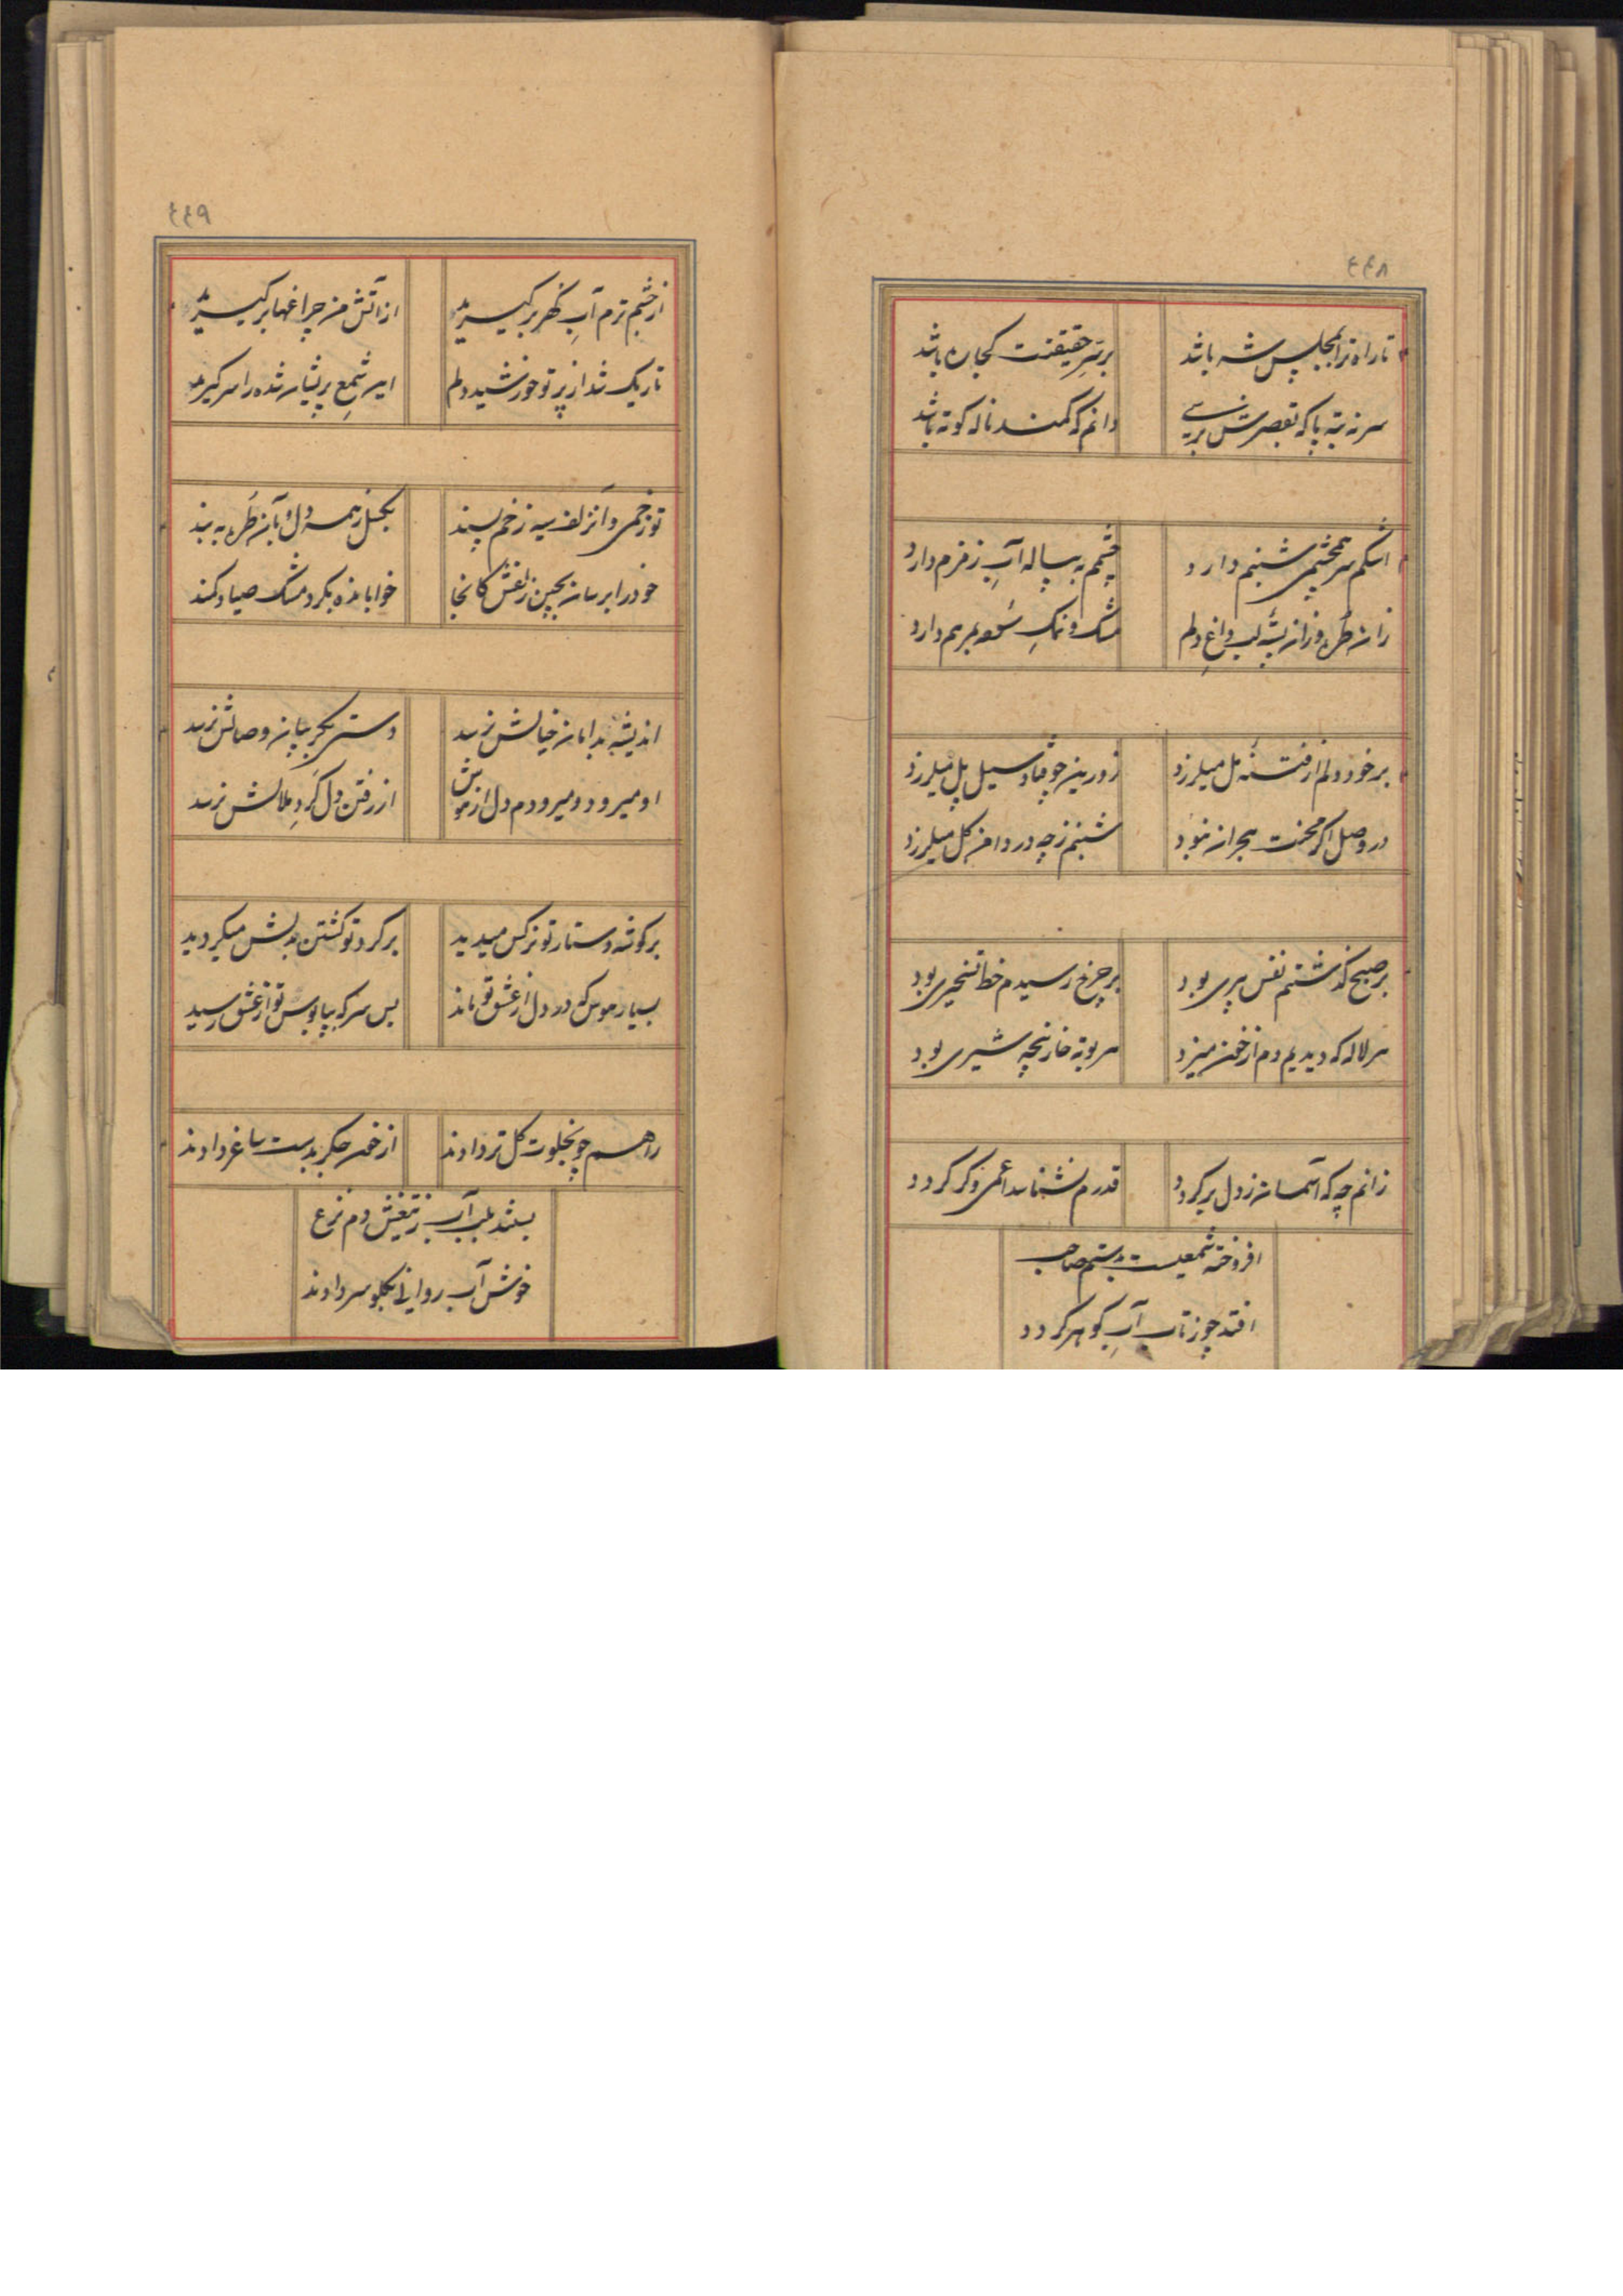 ٤٤٨
تا راه ترا بمجلس شه باشد
بر سر حقیقتت کجا ره باشد
سر نه بته پا که بقصرش برسی
دانم که کمند ناله کوته باشد
اشکم سر همچشمی شبنم دارد
چشمم به پیاله آبِ زمزم دارد
زان طُره وزان پسته لب داغِ دلم
مشک و نمکِ سُوده بمرهم دارد
بر خود دلم از فتنهٔ مُل میلرزد
زورین چو فتاد سیل پل میلرزد
در وصل اگر محنت هجران نبود
شبنم ز چه در دامن گل میلرزد
بر صبح گذشتم نفس پیری بود
بر چرخ رسیدم خط تسخیری بود
هر لاله که دیدیم دم از خون میزد
هر بوته خار پنجه شیری بود
زانم چه که آسمان ز دل بر گردد
قدرم نشناسد اعمی و کر گردد
افروخته شمعیست بدستم صاحب
افتد چو ز تاب آبِ گوهر گردد
٤٤٩
از چشم ترم آبِ گهر برگیرید
از آتش من چراغها برگیرید
تاریک شد از پرتو خورشید دلم
این شمعِ پریشان شده را سر گیرید
تو زخمی و آن زلف سیه زخم پسند
بگسل ز همه دل و بآن طُره به بند
خود را برسان بچین زلفش کانجا
خوابانده بگرد مشک صیاد کمند
اندیشه بدامان خیالش نرسد
دستی بگریبان وصالش نرسد
او میرود و میرودم دل از پیش
از رفتن دل گَردِ ملالش نرسد
بر گوشه دستار تو نرگس میدید
بر گرد تو گشتن بدلش میگردید
بسیار هوس که در دل از عشق تو ماند
بس سر که بپابوس تو از عشق رسید
راهم چو بخلوت گل تر دادند
از خون جگر بدست ساغر دادند
بستند بلب آب ز تیغش دم نزع
خوش آب روانی بگلو سر دادند